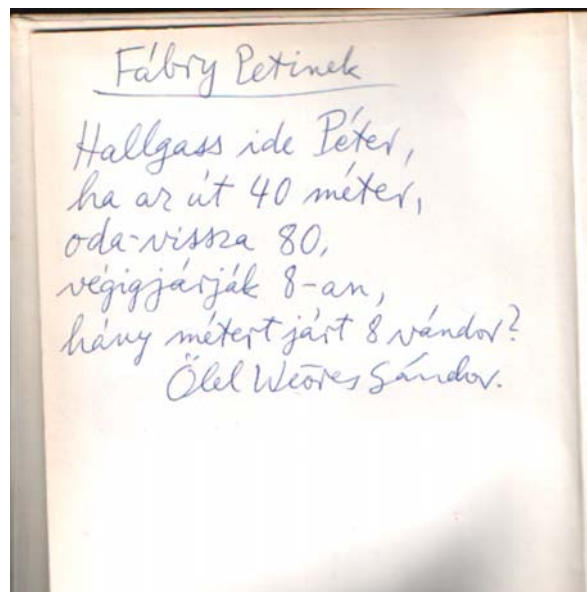 Fábry Petinek
Hallgass ide Péter,
ha az út 40 méter,
oda-vissza 80,
végigjárják 8-an,
hány métert járt 8 vándor?
Ölel Weöres Sándor.